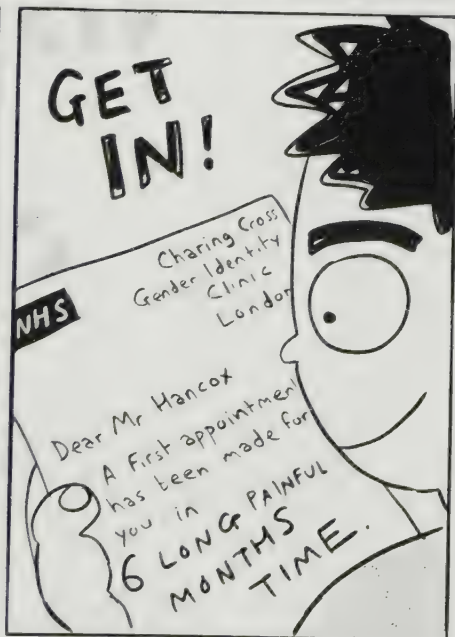 GET
IN!
Charing Cross
Gender Identity
Clinic
London
NHS
Dear Mr Hancox
A First appointment
has been made for
you in
6 LONG PAINFUL
MONTHS
TIME.